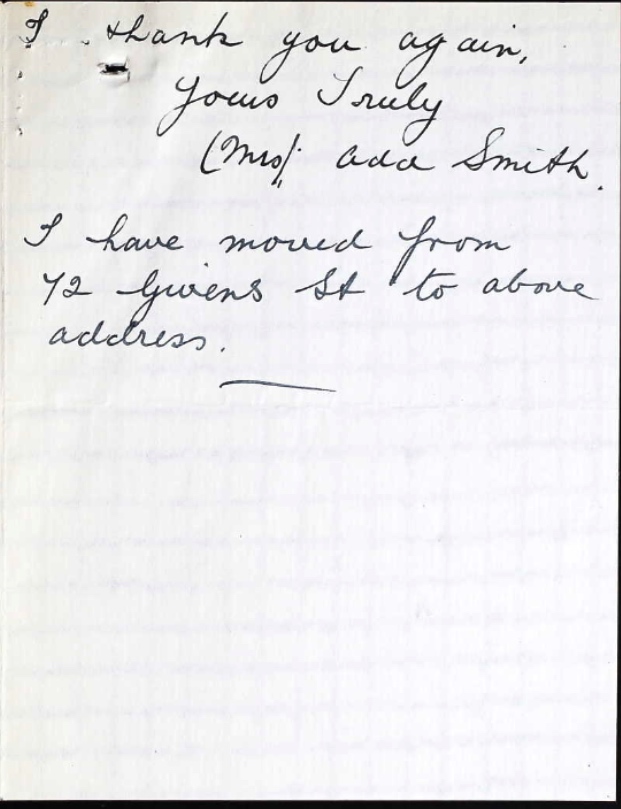 I thank you again,
Yours Truly
(Mrs). Ada Smith.
I have moved from
72 Givens St to above
address.